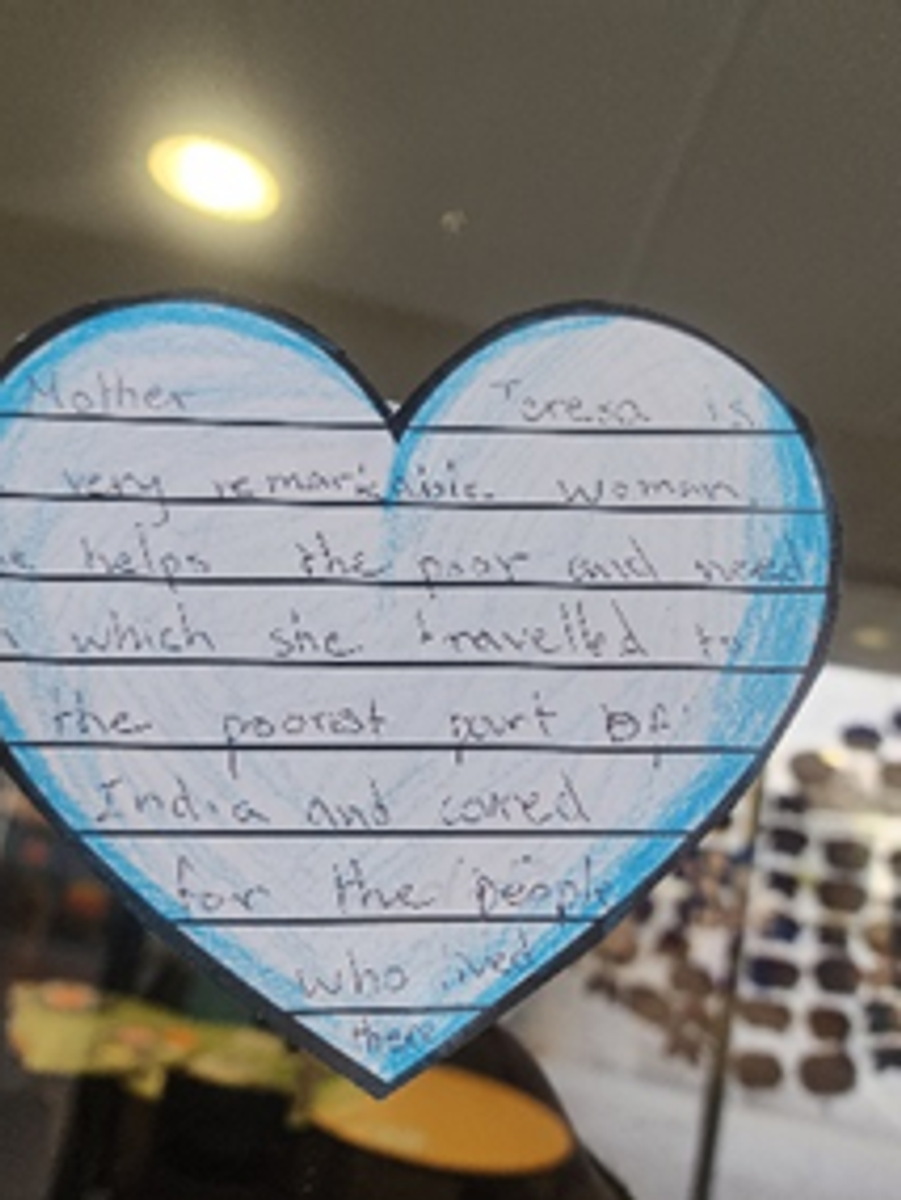 Mother Teresa is
very remarkable woman.
helps the poor and need
which she travelled to
the poorest part of
India and cared
for the people
who lived
there